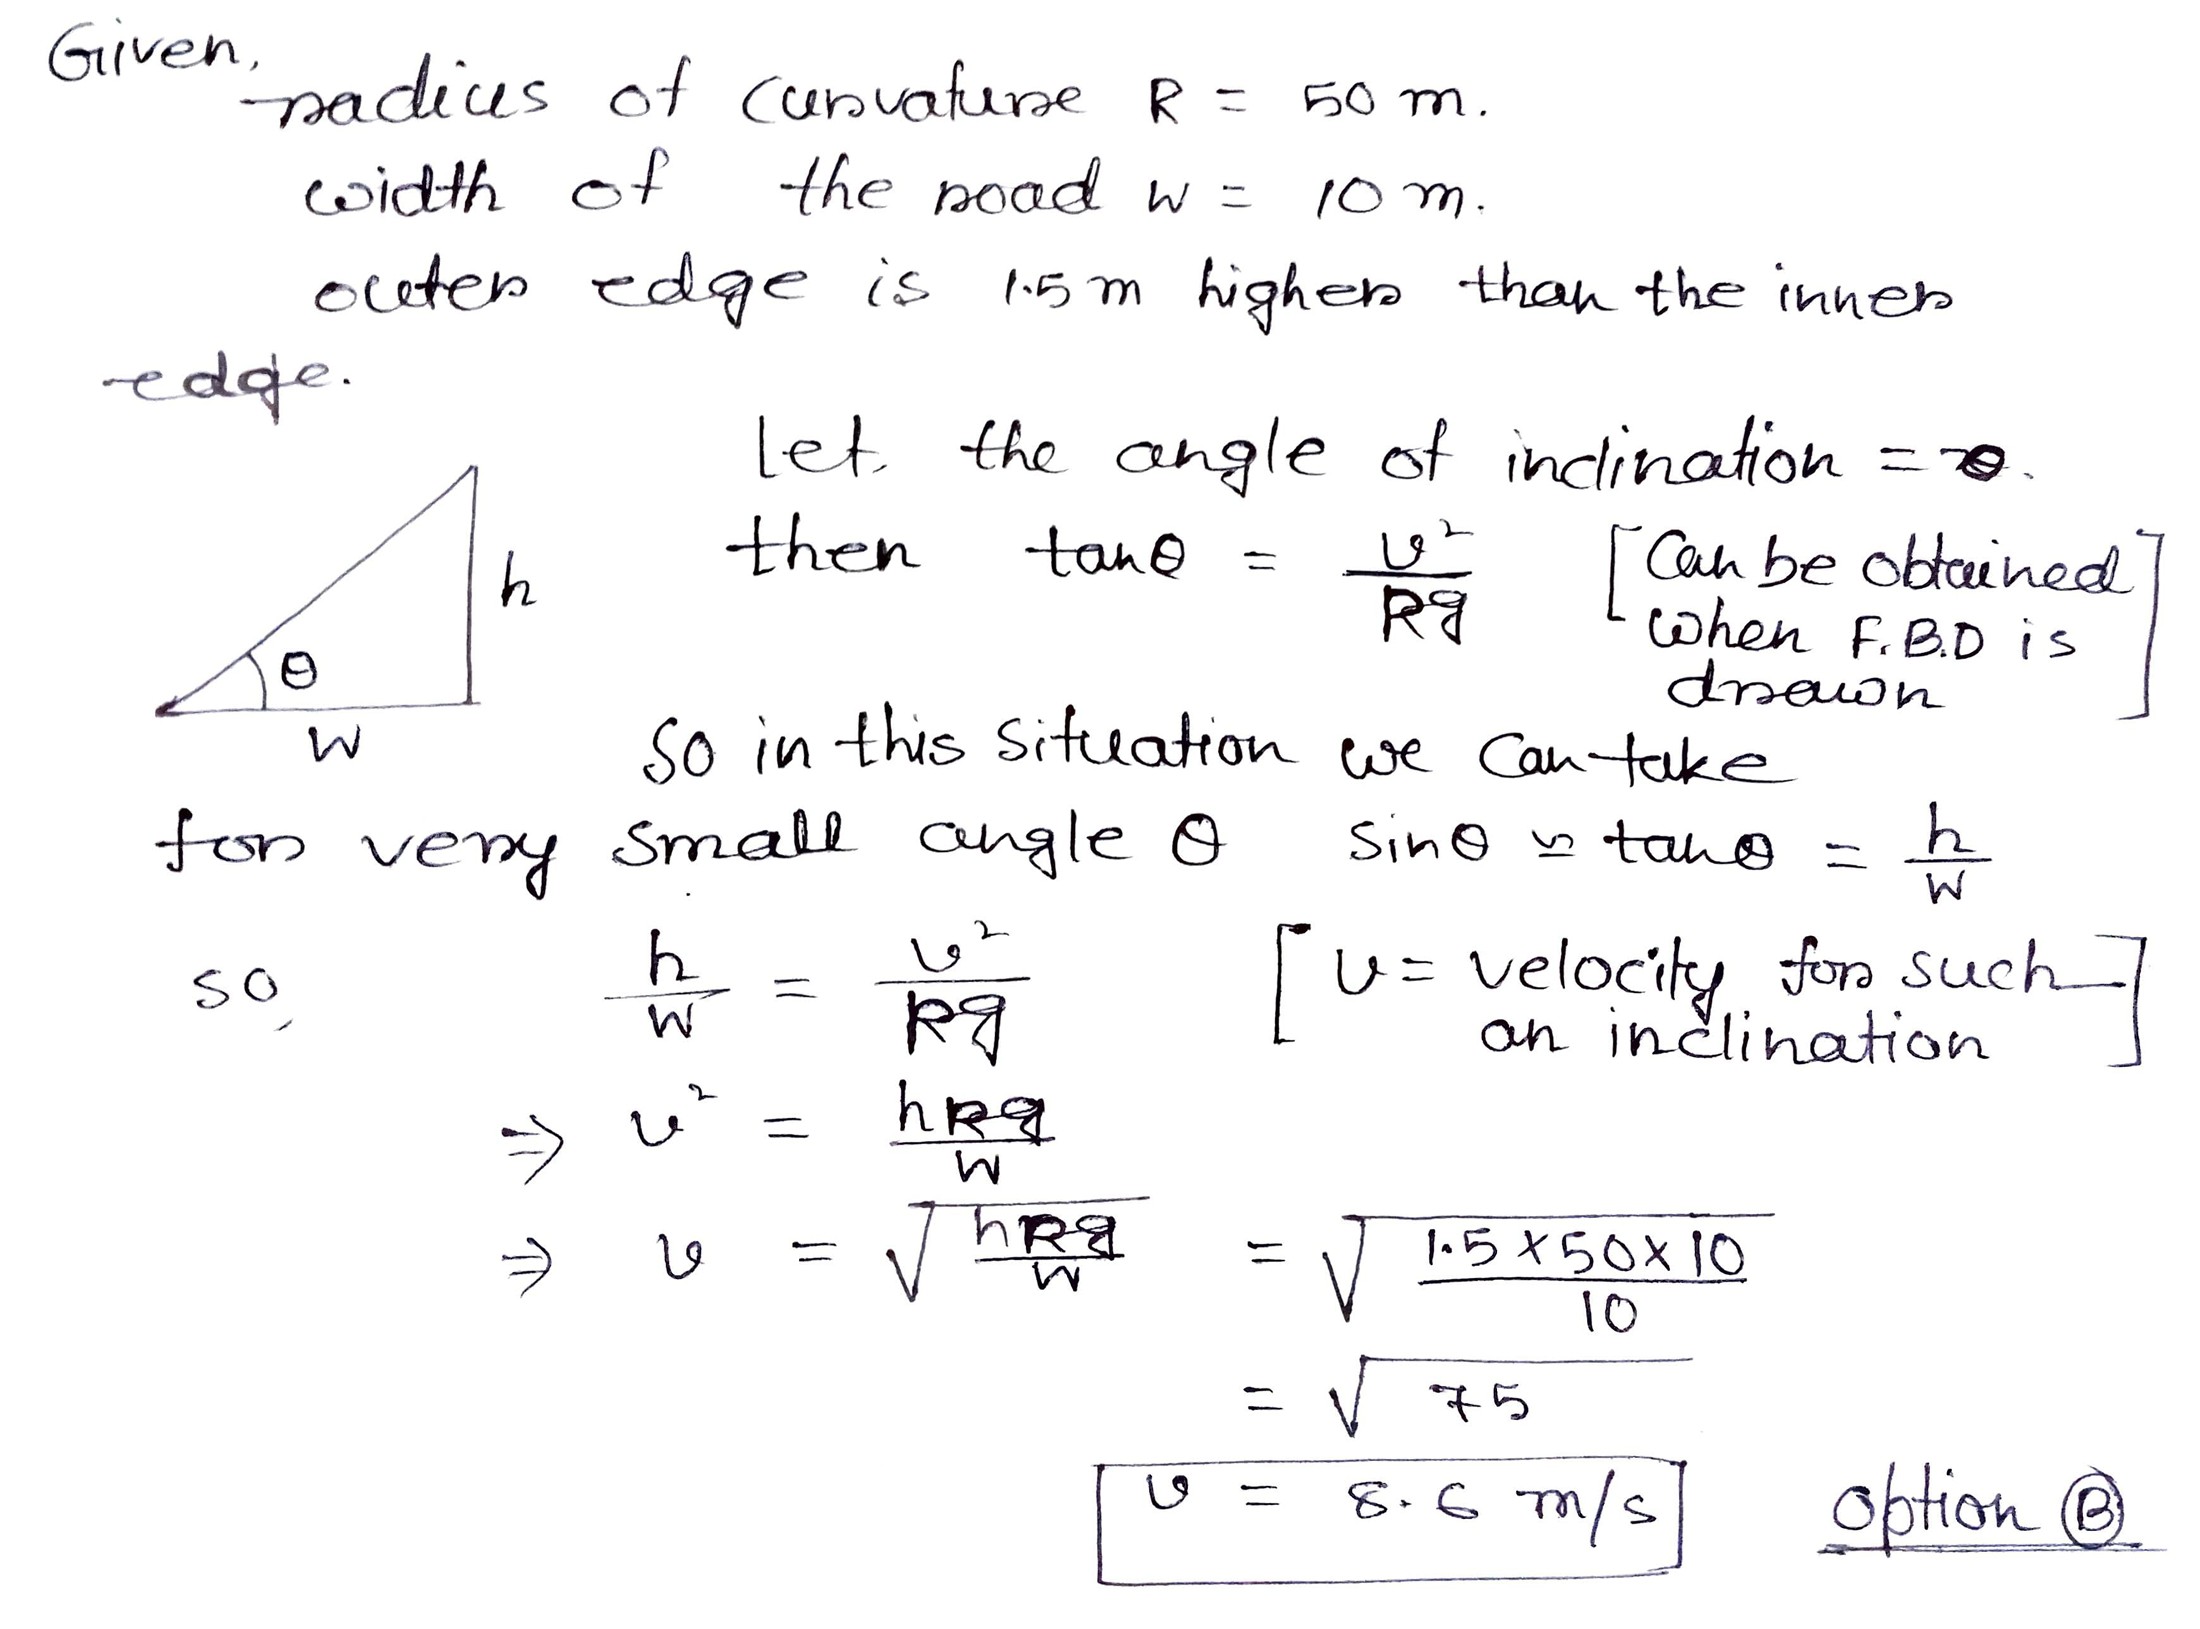 Given,
radius of curvature R = 50 m.
width of the road w = 10 m.
outer edge is 1.5 m higher than the inner
edge.
Let, the angle of inclination = θ.
then tanθ = v²/Rg [Can be obtained when F.B.D is drawn]
h
θ
w
So in this situation we can take
for very small angle θ sinθ ≃ tanθ = h/w
so, h/w = v²/Rg [v = velocity for such an inclination]
⇒ v² = hRg/w
⇒ v = √(hRg/w) = √(1.5×50×10/10)
= √75
v = 8.6 m/s option B